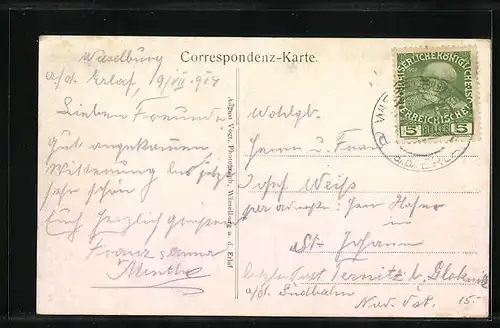 Correspondenz-Karte.
Wieselburg
a/d. Erlaf, 9/VII 914
Lieben Freunde!
Gut angekommen
Witterung bis jetzt
sehr schön!
Euch herzlich grüssend
Franz & Anna
August Vogt, Photograph, Wieselburg a. d. Erlaf
Wohlgb.
Herrn u. Frau
Josef Weiss
per adresse: Herr Hofer
in
St. Johann
letzte Post Ternitz b. Gloknitz
a/d. Südbahn
Nied. Öst.
15.-
KAISERLICHE KÖNIGLICHE
ÖSTERREICHISCHE
5 HELLER 5